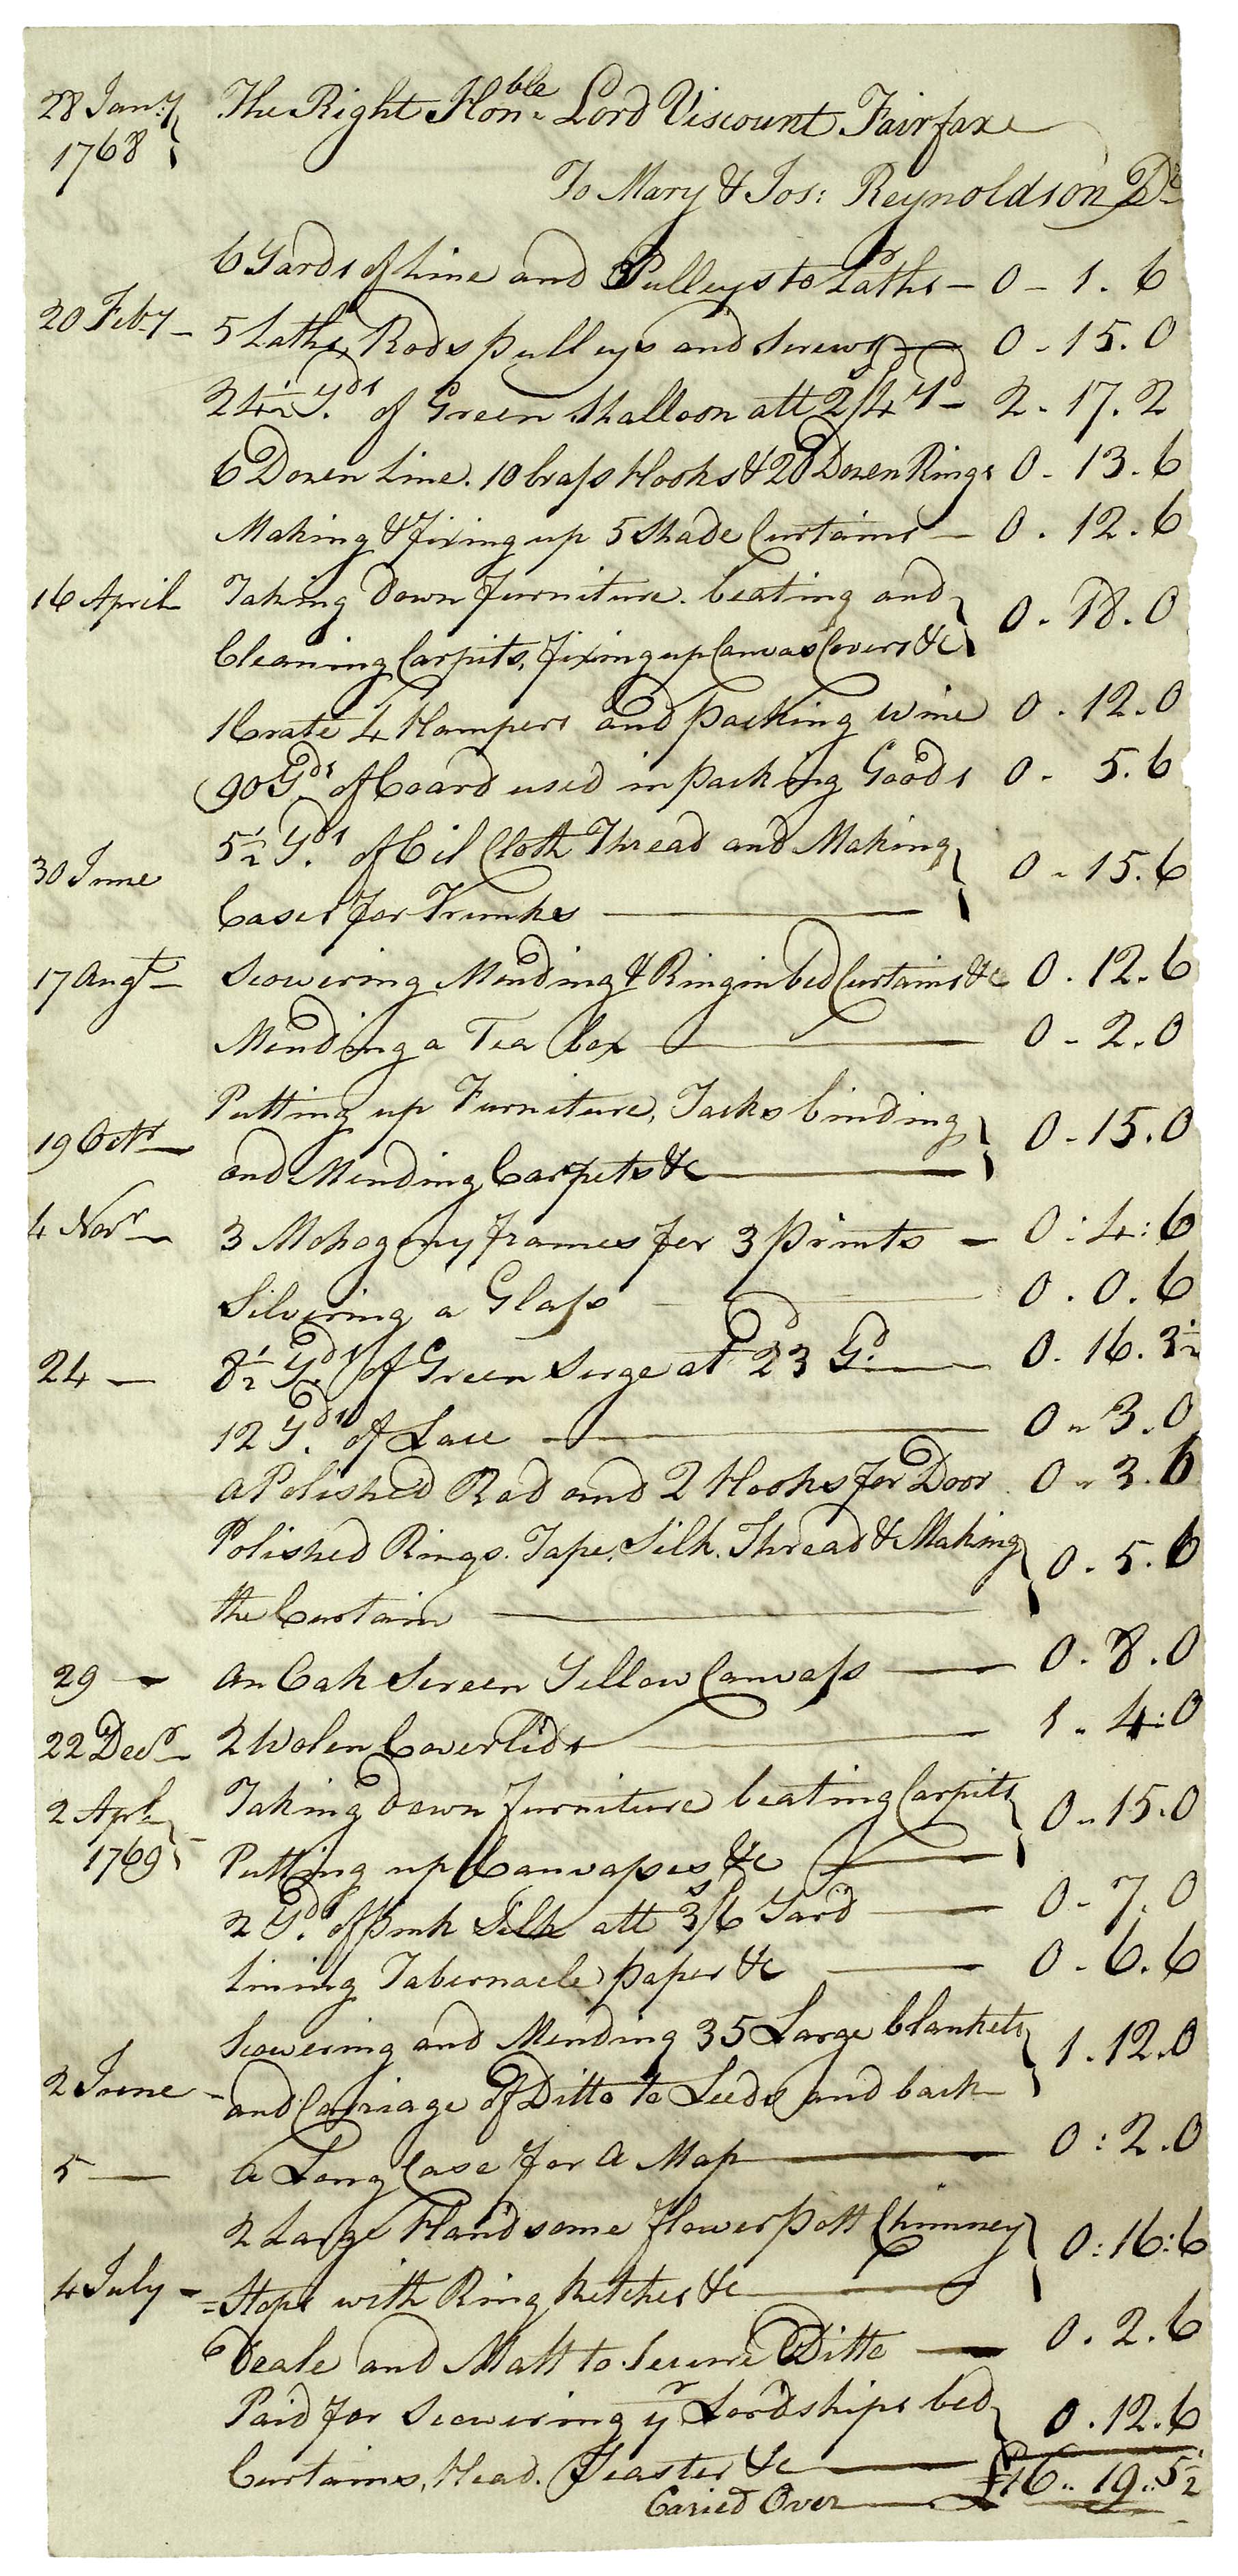 28 Jany 1768 The Right Honble Lord Viscount Fairfax
To Mary & Jos: Reynoldson Dr
6 Yards of Line and Pulleys to Laths — 0 – 1 . 6
20 Feby — 5 Laths, Rods pulleys and Screws — 0 - 15 . 0
24½ Yds of Green Shalloon att 2s/4d Yd — 2 - 17 . 2
6 Dozen Line. 10 brass Hooks & 20 Dozen Rings 0 - 13 . 6
Making & fixing up 5 Shade Curtains — 0 . 12 . 6
16 April Taking down furniture. beating and
Cleaning Carpits, fixing up Canvas Covers &c } 0 . 18 . 0
1 Crate 4 Hampers and packing wine 0 . 12 . 0
90 Yds of Coard used in packing Goods 0 - 5 . 6
30 June 5½ Yds of Oil Cloth Thread and Making
Cases for Trunks — } 0 - 15 . 6
17 Augt — Scowering Mending & Ringin bed Curtains &c 0 . 12 . 6
Mending a Tea box — 0 - 2 . 0
19 Octr — Putting up Furniture, Tacks binding
and Mending Carpets &c — } 0 - 15 . 0
4 Novr — 3 Mahogony frames for 3 prints — 0 : 4 : 6
Silvering a Glass — 0 . 0 . 6
24 — 8½ Yds of Green Serge at 23d Yd. — 0 . 16 . 3½
12 Yds of Lace — 0 - 3 . 0
a Polished Rod and 2 Hooks for Door 0 - 3 . 6
Polished Rings. Tape. Silk. Thread & Making
the Curtain — } 0 . 5 . 6
29 — an Oak Screen Yellow Canvass — 0 . 8 . 0
22 Decr — 2 Wolen Coverlids — 1 - 4 : 0
2 Aprl 1769 Taking down furniture beating Carpits
Putting up Canvases &c — } 0 - 15 . 0
2 Yds of pink Silk att 3s/6d Yard — 0 - 7 . 0
Lining Tabernacle paper &c — 0 - 6 . 6
2 June — Scowering and Mending 35 Large blankets
and Carriage of Ditto to Leeds and back } 1 . 12 . 0
5 — a Long Case for a Map — 0 : 2 . 0
4 July — 2 Large Handsome flower pott Chimney
= Stops with Ring ketches &c — } 0 : 16 : 6
Deale and Matt to Secure Ditto — 0 . 2 . 6
Paid for Scowering yr Lordships bed
Curtains, Head. Teaster &c — } 0 . 12 . 6
Caried Over — £16 .. 19 .. 5½